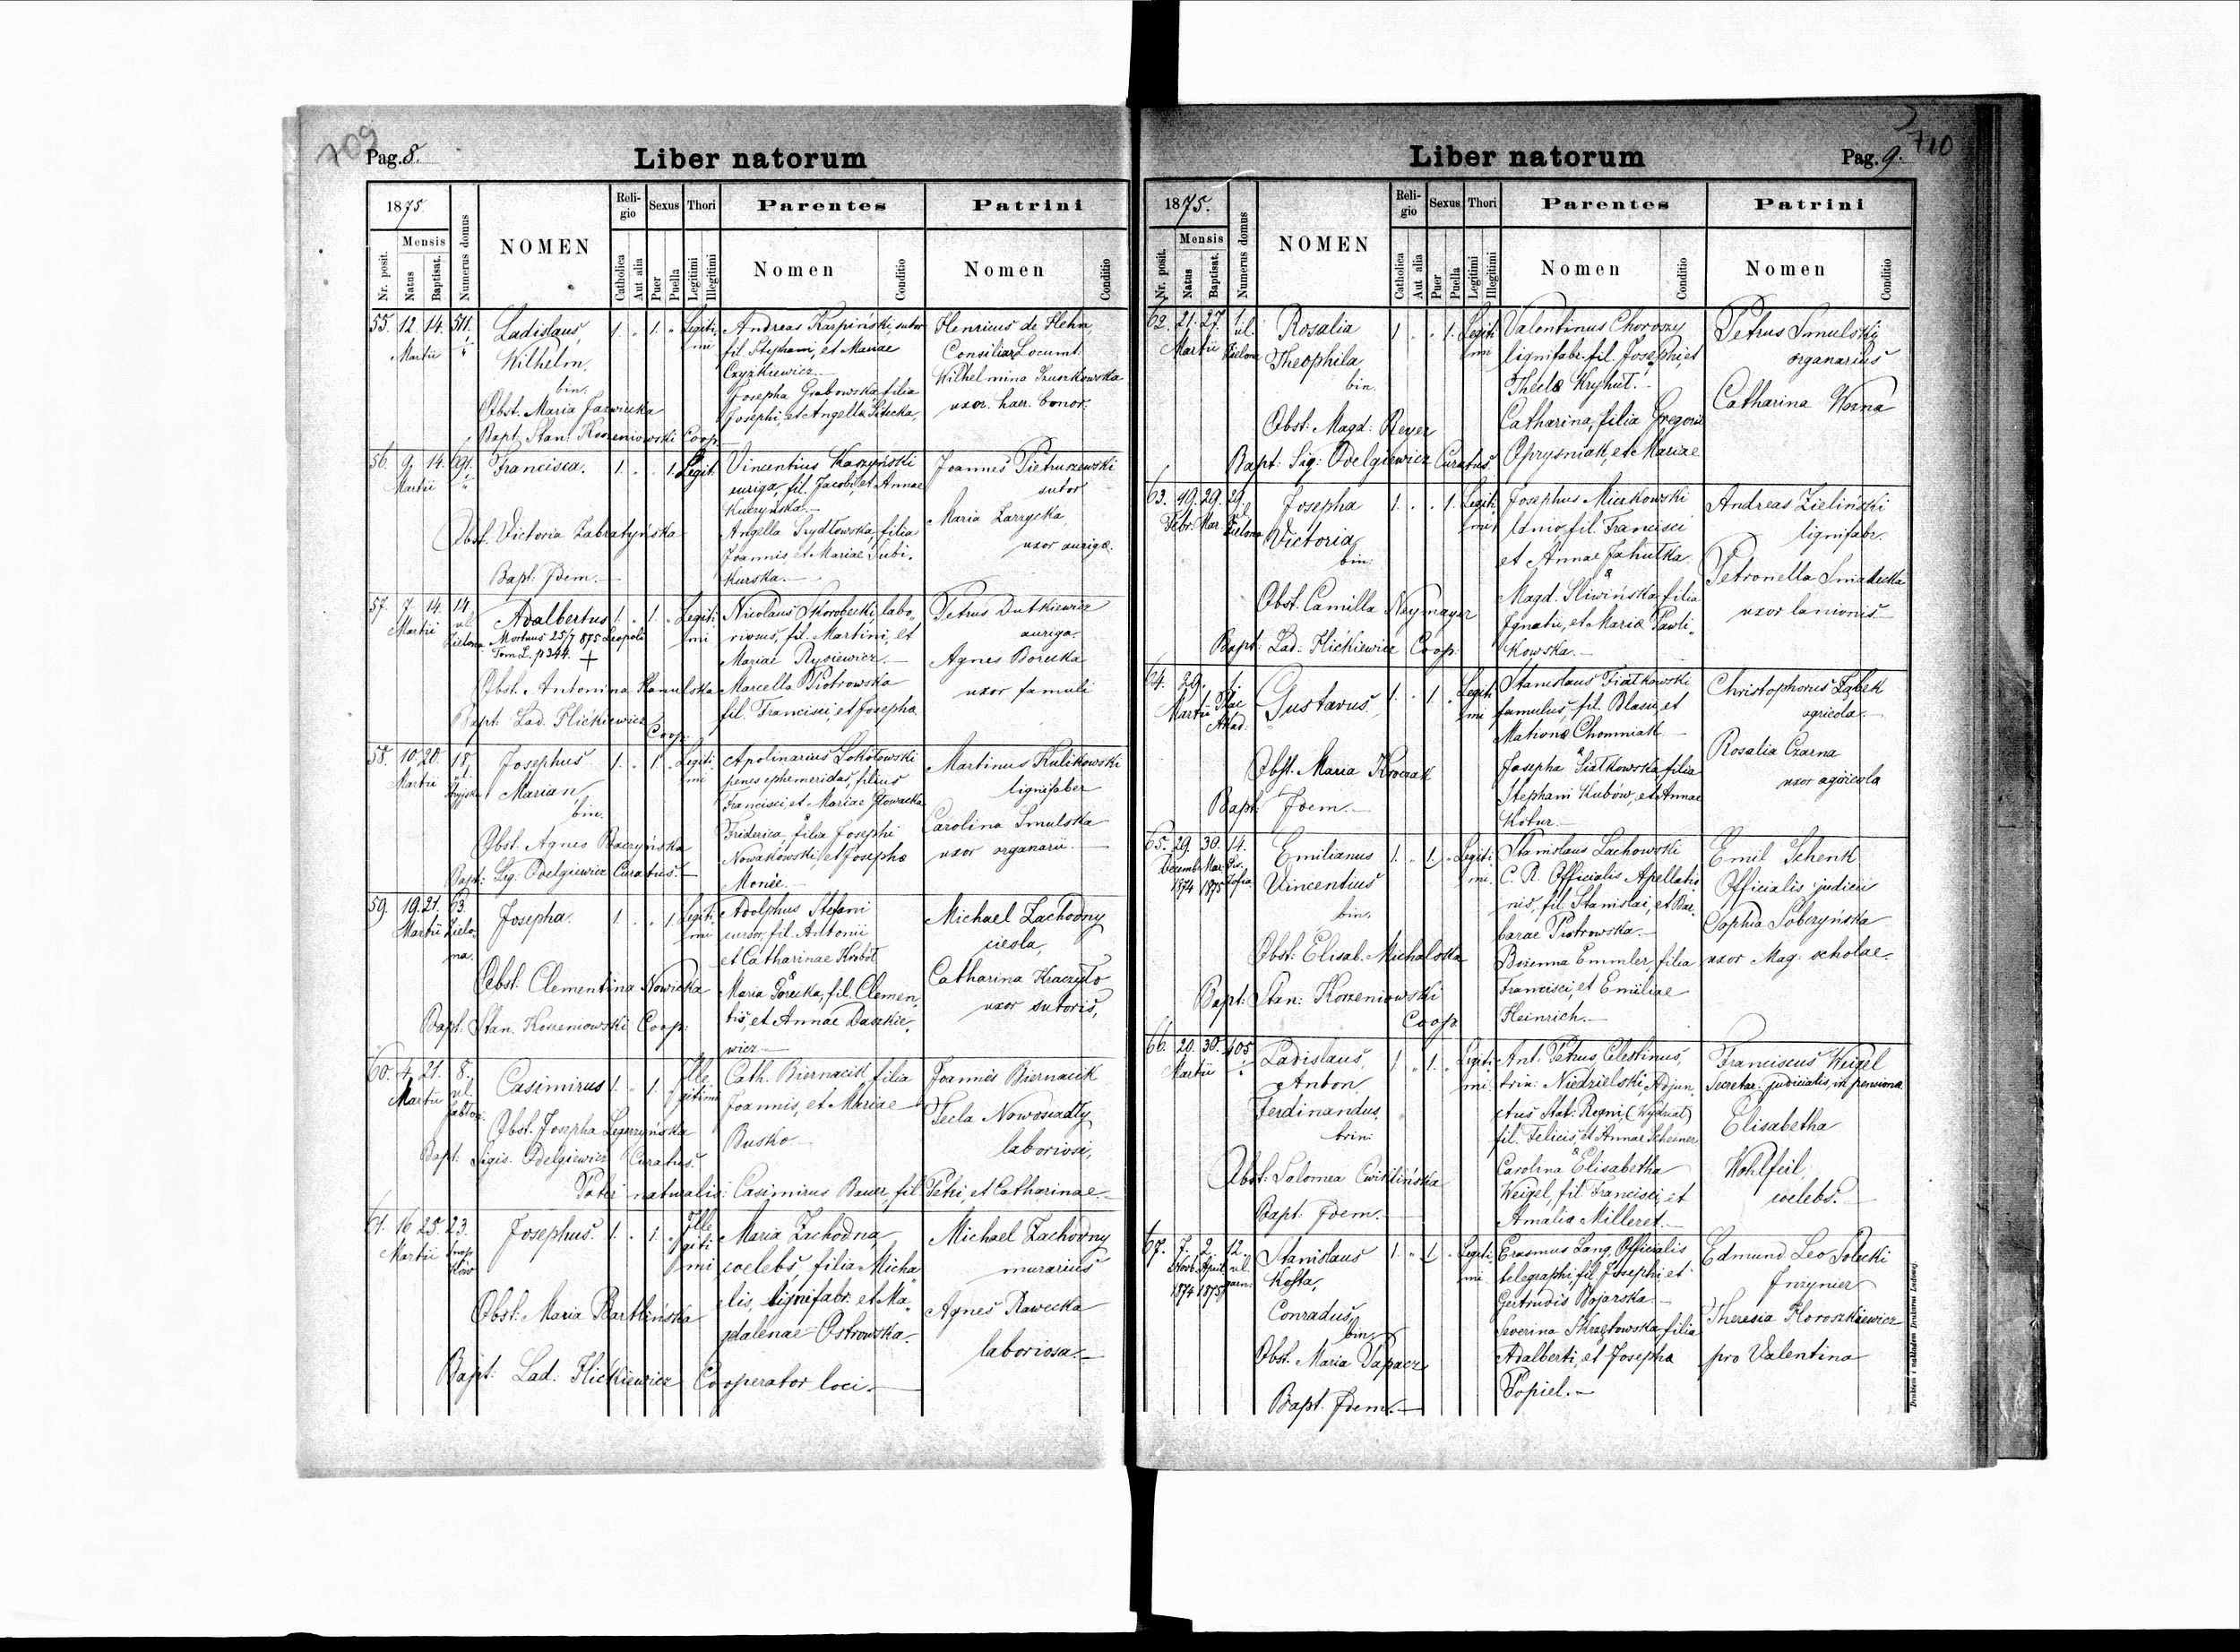 709
Pag. 8.
Liber natorum
1875.
Mensis
Nr. posit.
Natus
Baptisat.
Numerus domus
NOMEN
Religio
Catholica
Aut alia
Sexus
Puer
Puella
Thori
Legitimi
Illegitimi
Parentes
Nomen
Conditio
Patrini
Nomen
Conditio
55. 12. 14. 511.
Martii
Ladislaus,
Wilhelm,
bin.
Obst. Maria Jazwiecka
Bapt. Stan: Korzeniowski Coop.
1. " 1. " Legiti
mi
Andreas Karpiński, sutor
fil. Stephani, et Mariae
Czyżkiewicz.
Josepha Grabowska, filia
Josephi, et Angellæ Sitecka,
Henricus de Hehn,
Consiliar. Locumt.
Wilhelmina Szuszkowska
uxor. haer. bonor.
56. 9. 14. 691.
Martii
Francisca.
1. " " 1. Legit.
Obst. Victoria Zabratyńska
Bapt: Idem.
Vincentius Kaszyński
auriga, fil. Jacobi, et Annae
Kuczyńska.
Angella Szydłowska, filia
Joannis, et Mariae Lubi-
kurska.
Joannes Pietruszewski
sutor
Maria Zarzycka,
uxor aurigæ.
57. 7. 14. 14.
Martii ul.
Zielona
Adalbertus
Mortuus 25/7 875 Leopoli
Tom L. p 344. +
1. " 1. " Legiti
mi
Obst. Antonina Kanulska
Bapt. Lad. Hickiewicz
Coop.
Nicolaus Skorobecki, labo-
riosus, fil. Martini, et
Mariae Rysiewicz.
Marcella Piotrowska
fil. Francisci, et Josepha
Petrus Dutkiewicz
auriga.
Agnes Borecka
uxor famuli
58. 10. 20. 18.
Martii ul.
Stryjska
Josephus
Marian,
bin.
1. " 1. " Legiti
mi
Obst. Agnes Baczyńska
Bapt: Sig. Odelgiewicz Curatus.
Apolinarius Sokołowski
penes ephemeridas, filius
Francisci, et Mariae Głowacka
Friderica, filia Josephi
Nowakowski, et Josephæ
Monie.
Martinus Kulikowski
lignifaber
Carolina Smulska
uxor organarii.
59. 19. 21. 63.
Martii Zielo-
na.
Josepha.
1. " " 1. Legiti
mi
Obst. Clementina Nowicka
Bapt. Stan. Korzeniowski Coop.
Adolphus Stefani
cursor, fil. Antonii
et Catharinae Krobot
Maria Gorecka, fil. Clemen-
tis, et Annae Daszkie-
wicz
Michael Zachodny
ciesla,
Catharina Kraczyło
uxor sutoris,
60. 4. 21. 8.
Martii ul.
Casimirus
1. " 1. " Ille
gitimi
Obst. Josepha Legezyńska
Bapt. Sigis. Odelgiewicz Curatus.
Cath. Biernacik filia
Joannis, et Mariae
Busko
Joannes Biernacik
Tecla Nowosiadły
laboriosi,
Pater naturalis: Casimirus Bauer, fil. Petri, et Catharinae.
61. 16. 25. 23.
Martii Snop
ków
Josephus.
1. " 1. " Ille
giti
mi
Obst. Maria Bartlińska
Bapt: Lad: Hickiewicz Cooperator loci.
Maria Zachodna,
coelebs filia Micha
elis, lignifabr. et Ma-
gdalenae Ostrowska.
Michael Zachodny
murarius
Agnes Rawecka
laboriosa.
710
Pag. 9.
Liber natorum
1875.
Mensis
Nr. posit.
Natus
Baptisat.
Numerus domus
NOMEN
Religio
Catholica
Aut alia
Sexus
Puer
Puella
Thori
Legitimi
Illegitimi
Parentes
Nomen
Conditio
Patrini
Nomen
Conditio
62. 21. 27. 1.
Martii ul.
Zielona
Rosalia
Theophila
bin.
1. " " 1. Legiti
mi
Obst. Magd: Reyer
Bapt: Sig: Odelgiewicz Curatus.
Valentinus Choroszy
lignifabr. fil. Josephi, et
Theclæ Kryhut.
Catharina, filia Gregorii
Oprysniak, et Mariae
Petrus Smulski
organarius
Catharina Wozna
63. 19. 29. 29.
Febr. Mar. ul.
Zielona
Josepha
Victoria,
bin.
1. " " 1. Legiti
mi
Obst. Camilla Neymayer
Bapt. Lad. Hickiewicz Coop.
Josephus Miczkowski
lanio, fil. Francisci
et Annae Jahutka
Magd. Sliwińska, filia
Ignatii, et Mariæ Pawli-
kowska.
Andreas Zieliński
lignifabr.
Petronella Sniadecka
uxor lanionis
64. 29.
Martii
Gustavus,
1. " 1. " Legiti
mi
Obst. Maria Kroczak
Bapt. Idem.
Stanislaus Fiałkowski
famulus, fil. Blasii, et
Chomniak
Josepha Siatkowska, filia
Stephani Kubów, et Annae
Kobur.
Christophorus Ząbek
agricola.
Rosalia Czarna
uxor agricola
65. 29. 30. 14.
Decemb. Mar. Sw.
1874 1875 Zofia
Emilianus
Vincentius
bin.
1. " 1. " Legiti
mi.
Obst. Elisab. Michalska
Bapt: Stan: Korzeniowski
Coop.
Stanislaus Lachowski
C. R. Officialis Apellatio
nis, fil. Stanislai, et Bar-
barae Piotrowska.
Bożenna Emmler, filia
Francisci, et Emiliae
Heinrich.
Emil Schenk
Officialis judicii
Sophia Sobczyńska
uxor Mag: scholae.
66. 20. 30. 405
Martii
Ladislaus,
Anton,
Ferdinandus,
trin:
1. " 1. " Legiti
mi.
Obst. Salomea Cwiklińska
Bapt. Idem.
Ant. Petrus, Celestinus,
trin: Niedzielski, Adjun-
ctus Stat: Regni (Wydział)
fil. Felicis, et Annae Scheiner
Carolina Elisabetha
Weigel, fil. Francisci, et
Amalia Milleret.
Franciscus Weigel
Secretar. judicialis, in pensiona
Elisabetha
Wohlfeil,
coelebs.
67. 7. 2. 12.
Novb. April ul.
1874 1875
Stanislaus
Kostka,
Conradus,
bin.
1. " 1. " Legiti
mi.
Obst. Maria Tapacz
Bapt. Idem.
Erasmus Lang, Officialis
telegraphi, fil. Josephi, et
Gertrudis Bojarska
Severina Skrzętowska, filia
Adalberti, et Josepha
Popiel.
Edmund Leo Solecki
Inzynier
Theresia Horoszkiewicz
pro Valentina
Drukiem i nakładem Drukarni Ludowej.